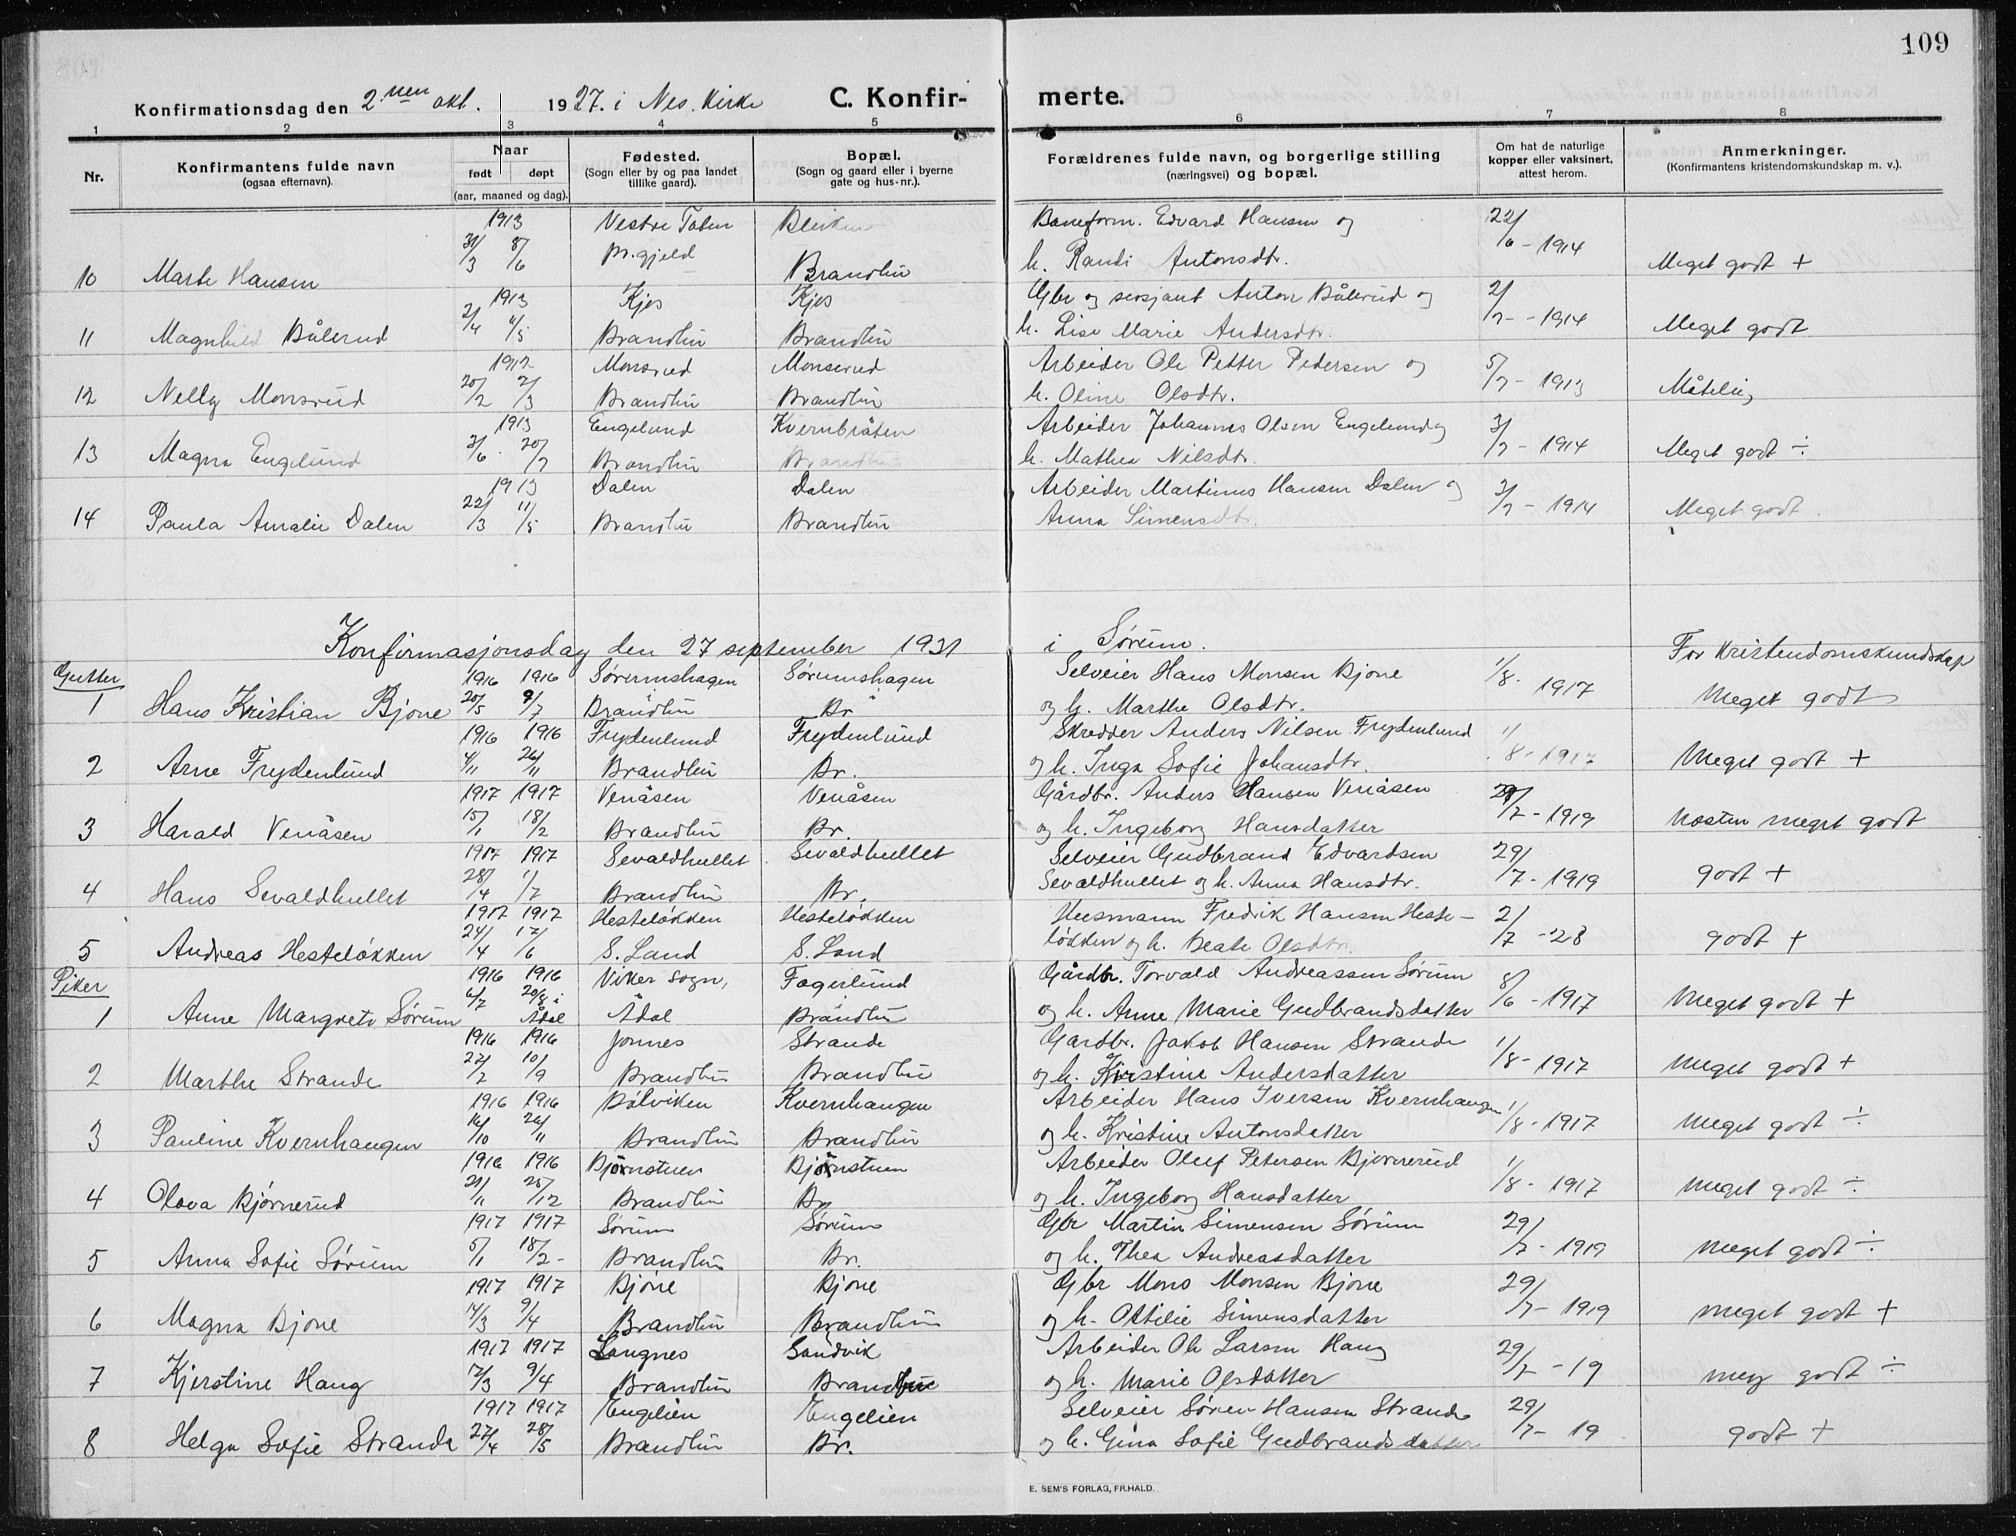 109
Konfirmationsdag den 2nen okt. 1927. i Nes. Kirke C. Konfir- merte.
1 2 3 4 5 6 7 8
Nr. Konfirmantens fulde navn (ogsaa efternavn). Naar født døpt (aar, maaned og dag). Fødested. (Sogn eller by og paa landet tillike gaard). Bopæl. (Sogn og gaard eller i byerne gate og hus-nr.). Forældrenes fulde navn, og borgerlige stilling (næringsvei) og bopæl. Om hat de naturlige kopper eller vaksinert, attest herom. Anmerkninger. (Konfirmantens kristendomskundskap m. v.).
1913 Vestre Toten Bleiken Baneform. Edvard Hansen og 22/
10 Marte Hansen 31/3 8/6 pr.gjeld Brandbu h. Randi Antonsdtr. /6 - 1914 Meget godt +
1913 Kjos Kjos Gbr og sersjant Anton Bålerud og 2/
11 Magnhild Bålerud 2/4 4/5 Brandbu Brandbu h. Lise Marie Andersdtr. /7 - 1914 Meget godt
1912 Monsrud Monserud Arbeider Ole Petter Pedersen og 5/
12 Nelly Monsrud 20/2 2/3 Brandbu Brandbu h. Oline Olsdtr. /7 - 1913 Måtelig
1913 Engelund Kvernbråten Arbeider Johannes Olsen Engelund og 3/
13 Magna Engelund 3/6 20/7 Brandbu Brandbu h. Mathea Nilsdtr. /7 - 1914 Meget godt ÷
1913 Dalen Dalen Arbeider Martinus Hansen Dalen og 3/
14 Paula Amalie Dalen 22/3 11/5 Brandbu Brandbu Anna Simensdtr. /7 - 1914 Meget godt.
Konfirmasjonsdag den 27 september 1931 i Sørum. For kristendomskundskap
Gutter 1916 1916 Sørumshagen Sørumshagen Selveier Hans Monsen Bjone 1/8.
1 Hans Kristian Bjone 20/5 9/7 Brandbu Br og h. Marthe Olsdtr. 1917 Meget godt
1916 1916 Frydenlund Frydenlund Skredder Anders Nilsen Frydenlund 1/
2 Arne Frydenlund 4/11 26/11 Brandbu Br. og h. Inga Sofie Johansdtr. 8 - 1917 Meget godt +
1917 1917 Venåsen Venåsen Gårdbr. Anders Hansen Venåsen 29/
3 Harald Venåsen 15/1 18/2 Brandbu Br. og h. Ingeborg Hansdatter /7 - 1919 Nesten meget godt
1917 1917 Sevaldhullet Sevaldhullet Selveier Gudbrand Edvardsen 29/
4 Hans Sevaldhullet 28/4 1/7 Brandbu Br. Sevaldhullet og h. Anna Hansdtr. /7 - 1919 godt +
1917 1917 Hesteløkken Hesteløkken Husmann Fredrik Hansen Heste- 2/
5 Andreas Hesteløkken 24/4 17/6 S. Land S. Land løkken og h. Beate Olsdtr. /7 - 28 godt +
Piker 1916 1916 Viker sogn, Fagerlund Gårdbr. Torvald Andreassen Sørum 8/
1 Anne Margrete Sørum 6/7 20/8 i Ådal Ådal Brandbu og h. Anne Marie Gudbrandsdatter /6 - 1917 Meget godt +
1916 1916 Jonnes Strande Gårdbr. Jakob Hansen Strande 1/
2 Marthe Strande 22/2 10/9 Brandbu Brandbu og h. Kirstine Andersdatter /8 - 1917 Meget godt +
1916 1916 Bølviken Kvernhaugen Arbeider Hans Iversen Kvernhaugen 1/
3 Pauline Kvernhaugen 16/10 26/11 Brandbu Brandbu og h. Kristine Antonsdatter /8 - 1917 Meget godt ÷
1916 1916 Bjørnstuen Bjørnstuen Arbeider Oluf Petersen Bjørnerud 1/
4 Olava Bjørnerud 21/11 25/12 Brandbu Br og h. Ingeborg Hansdatter /8 - 1917 Meget godt ÷
1917 1917 Sørum Sørum Gbr Martin Simensen Sørum 29/
5 Anna Sofie Sørum 5/1 18/2 - Brandbu Br. og h. Thea Andreasdatter /7 - 1919 Meget godt ÷
1917 1917 Bjone Bjone Gbr Mons Monsen Bjone 29/
6 Magna Bjone 14/3 9/4 Brandbu Brandbu og h. Ottilie Simensdatter /7 - 1919 Meget godt +
1917 1917 Langnes Sandvik Arbeider Ole Larsen Haug 29/
7 Kjerstine Haug 12/3 9/4 Brandbu Brandbu og h. Marie Olsdatter /7 - 19 meg godt ÷
1917 1917 Engelien Engelien Selveier Søren Hansen Strande 29/
8 Helga Sofie Strande 27/4 28/5 Brandbu Br. og h. Gina Sofie Gudbrandsdatter /7 - 19 godt +
E. SEM'S FORLAG, FR.HALD.